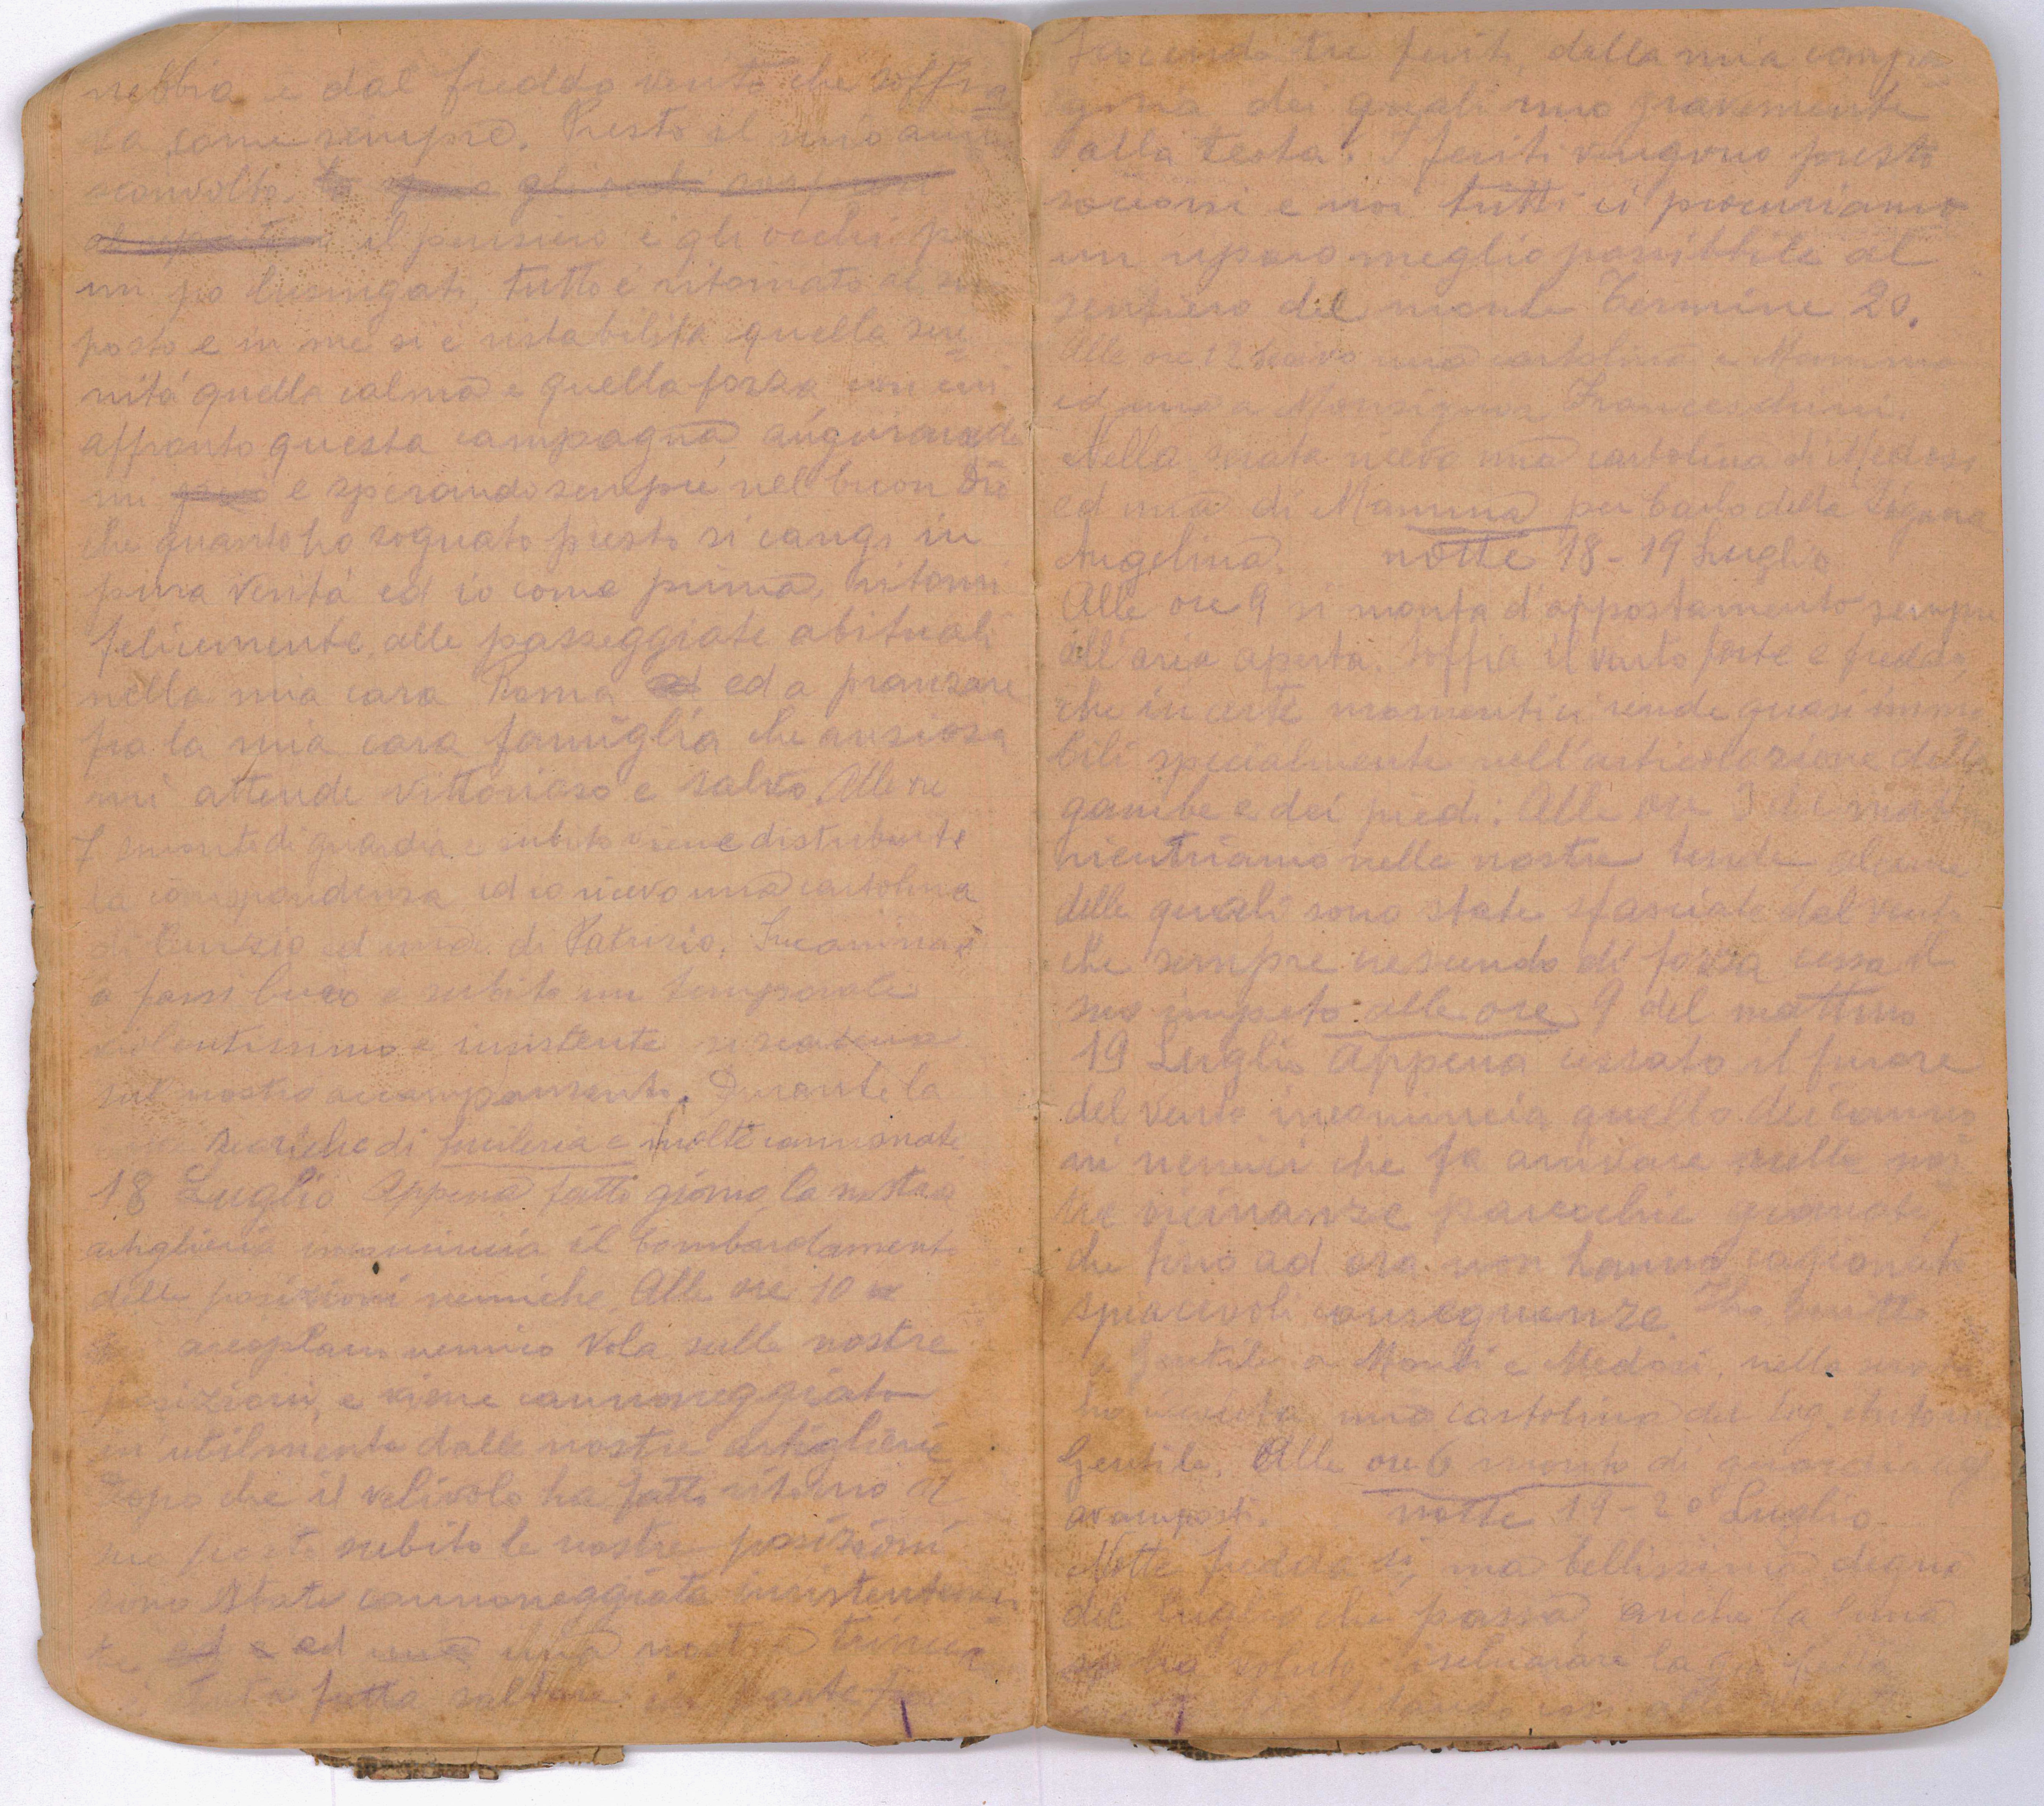 nebbia e dal freddo vento che soffia
va come sempre. Presto il mio animo
sconvolto.
il pensiero e gli occhi
un po lusingati, tutto è ritornato al suo
posto e in me si è ristabilita quella sere
nità quella calma e quella forza con cui
affronto questa campagna, augurando
mi e sperando sempre nel buon Dio
che quanto ho sognato presto si cangi in
pura verità ed io come prima, ritorni
felicemente, alle passeggiate abituali
nella mia cara Roma ed a pranzare
fra la mia cara famiglia che ansiosa
mi attende vittorioso e salvo. Alle ore
7 smonto di guardia e subito viene distribuite
la corrispondenza ed io ricevo una cartolina
di ed una di Patrizio. Incomincia
a farsi buio e subito un temporale
violentissimo e insistente si scatena
sul nostro accampamento. Durante la
scariche di fucileria e molte cannonate
18 Luglio Appena fatto giorno la nostra
artiglieria incomincia il bombardamento
delle posizioni nemiche. Alle ore 10
areoplano nemico vola sulle nostre
posizioni, e viene cannoneggiato
inutilmente dalle nostre artiglierie
Dopo che il velivolo ha fatto ritorno al
suo posto subito le nostre posizioni
sono state cannoneggiate insistentemen
te ed a ad una una nostra trincea
è stata fatta saltare in parte
facendo tre feriti, della mia compa
gnia dei quali uno gravemente
alla testa. I feriti vengono presto
soccorsi e noi tutti ci procuriamo
un riparo meglio possibbile al
sentiero del monte Termine 20.
Alle ore 12 scrivo una cartolina a Mamma
ed una a Monsignor Franceschini.
Nella serata ricevo una cartolina di Medosi
ed una di Mamma per Carlo della Signora
Angelina. notte 18-19 Luglio
Alle ore 9 si monta d'appostamento sempre
all'aria aperta. Soffia il vento forte e freddo,
che in certi momenti ci rende quasi immo
bili specialmente nell'articolazione delle
gambe e dei piedi. Alle ore 3 del mattino
rientriamo nelle nostre tende alcune
delle quali sono state sfasciate dal vento
che sempre crescendo di forza cessa il
suo impeto alle ore 9 del mattino
19 Luglio Appena cessato il furore
del vento incomincia quello dei canno
ni nemici che fa arrivare nelle nos
tre vicinanze parecchie granate
che fino ad ora non hanno cagionato
spiacevoli conseguenze. Ho scritto
a Gentile a Monti e Medosi, nella serata
ho ricevuta una cartolina del Antonio
Gentile. Alle ore 6 smonto di guardia agl
avamposti. notte 19-20 Luglio
Notte fredda si, ma bellissima degna
del luglio che passa, anche la luna
ha voluto rischiarare la